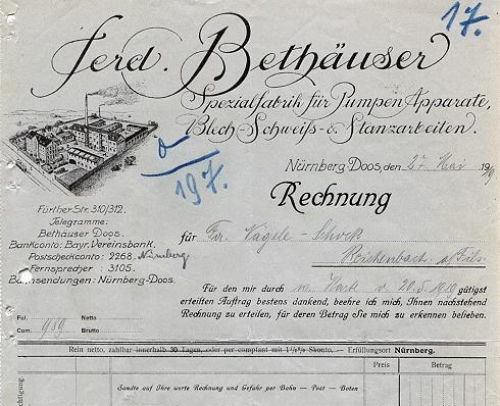 17.
Ferd. Bethäuser
Spezialfabrik für Pumpen, Apparate,
Blech-Schweiß- & Stanzarbeiten.
Nürnberg-Doos, den 27 Mai 19
197.
Rechnung
Further Str. 310/312.
Telegramme:
Bethäuser Doos.
Bankconto: Bayr. Vereinsbank.
Postscheckconto: 2268. Nürnberg
Fernsprecher: 3105.
Bahnsendungen: Nürnberg-Doos.
für Fa. Nägele-Schock
Reichenbach a/Fils
Für den mir durch w. Kart v. 20.5.1919 gütigst
erteilten Auftrag bestens dankend, beehre ich mich, Ihnen nachstehend
Rechnung zu erteilen, für deren Betrag Sie mich zu erkennen belieben.
Fol. Netto
Com. 989. Brutto
Rein netto, zahlbar innerhalb 30 Tagen, oder per comptant mit 1½% Skonto. — Erfüllungsort Nürnberg.
Preis Betrag
Sandte auf Ihre werte Rechnung und Gefahr per Bahn — Post — Boten